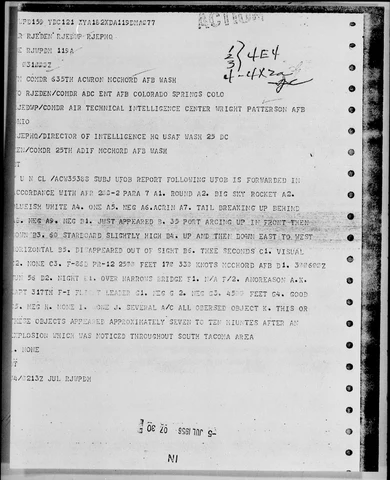 ACTION
YDC121 ZYA182XDA119EMA077
R RJEDEN RJEDDP RJEPHQ
E RJWPDM 119A
031A25Z
COMDR 635TH ACWRON MCCHORD AFB WASH
O RJEDEN/COMDR ADC ENT AFB COLORADO SPRINGS COLO
JEDWP/COMDR AIR TECHNICAL INTELLIGENCE CENTER WRIGHT PATTERSON AFB
JEPHQ/DIRECTOR OF INTELLIGENCE HQ USAF WASH 25 DC
EN/COMDR 25TH ADIF MCCHORD AFB WASH
U N CL /ACW3538S SUBJ UFOB REPORT FOLLOWING UFOB IS FORWARDED IN
CCORDANCE WITH AFR 200-2 PARA 7 A1. ROUND A2. BIG SKY ROCKET A2.
BLUEISH WHITE A4. ONE A5. NEG A6.ACRIN A7. TAIL BREAKING UP BEHIND
NEG A9. NEG B1. JUST APPEARED B. 35 PORT ARCING UP IN FRONT THEN
OWN B3. 60 STARBOARD SLIGHTLY HIGH B4. UP AND THEN DOWN EAST TO WEST
ORIZONTAL B5. DISAPPEARED OUT OF SIGHT B6. THREE SECONDS C1. VISUAL
2. NONE C3. F-86D PB-12 2500 FEET 170 330 KNOTS MCCHORD AFB D1.
D2. NIGHT E1. OVER NARROWS BRIDGE F1. N/A F/2. ANDREASON A.K.
AST 317TH F-I FLIGHT LEADER G1. NEG G 2. NEG G3. 4500 FEET G4. GOOD
NEG H. NONE I. NONE J. SEVERAL A/C ALL OSERSED OBJECT K. THIS OR
HESE OBJECTS APPEARED APPROXIMATELY SEVEN TO TEN MIUNTES AFTER AN
EXPLOSION WHICH WAS NOTICED THROUGHOUT SOUTH TACOMA AREA
. NONE
T
4/2213Z JUL RJWPDM
-5 JUL 1956 07 30
IN